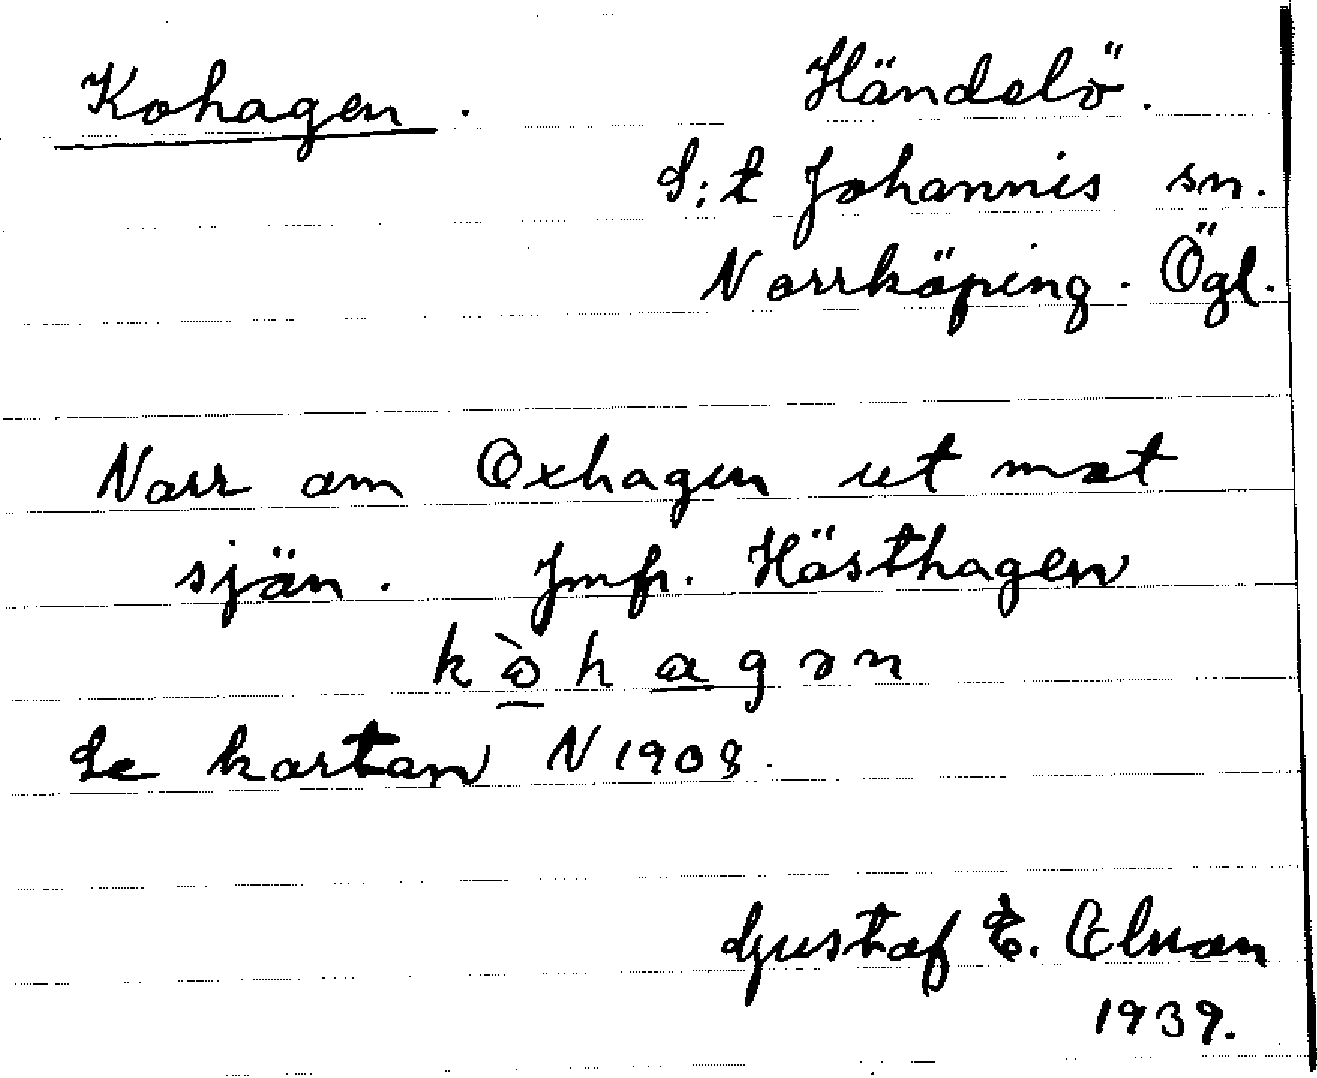 Kohagen. Händelö.
S:t Johannis sn.
Norrköping. Ögl.
Norr om Oxhagen ut mot
sjön. Jmfr. Hästhagen
kòhagən
Se kartan N 1908.
Gustaf E.
1939.